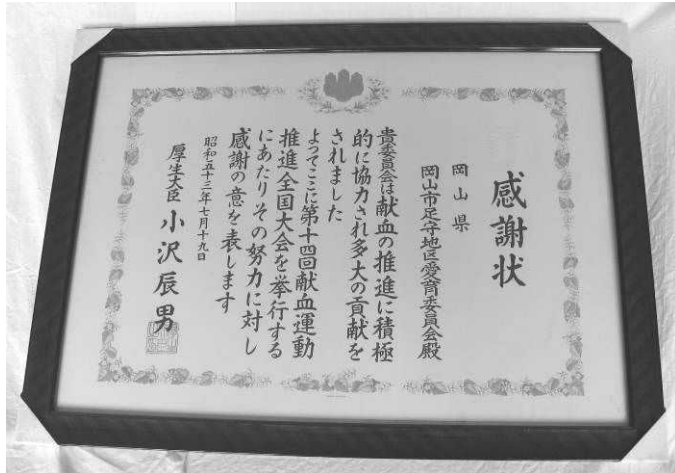 感謝状
岡山県
岡山市足守地区愛育委員会殿
貴委員会は献血の推進に積極
的に協力され多大の貢献を
されました
よってここに第十四回献血運動
推進全国大会を挙行する
にあたりその努力に対し
感謝の意を表します
昭和五十三年七月十九日
厚生大臣 小沢辰男